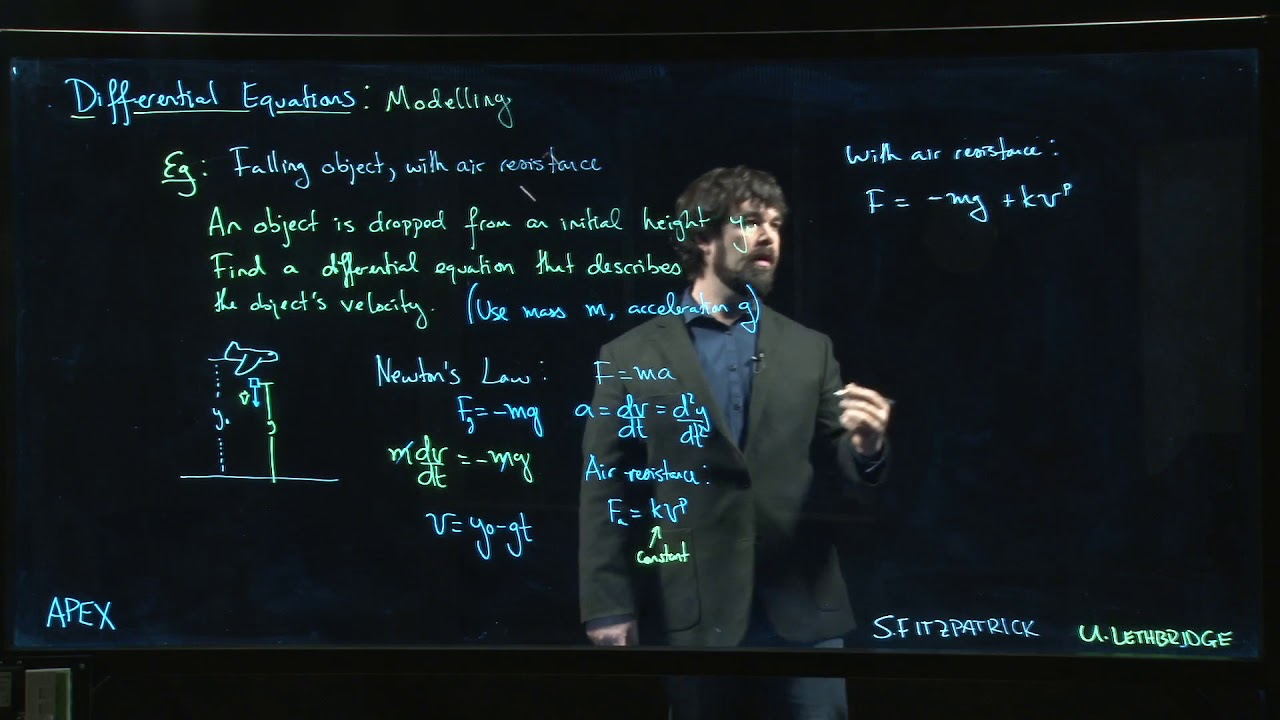 Differential Equations: Modelling
Eg: Falling object, with air resistance
An object is dropped from an initial height y₀
Find a differential equation that describes
the object's velocity. (Use mass m, acceleration g)
y₀
v
y
Newton's Law: F=ma
F_g=-mg a=dv/dt=d²y/dt²
m dv/dt=-mg
Air resistance:
v=y₀-gt
Fₐ=kvᵖ
constant
With air resistance:
F = -mg +kvᵖ
APEX
S.FITZPATRICK
U.LETHBRIDGE